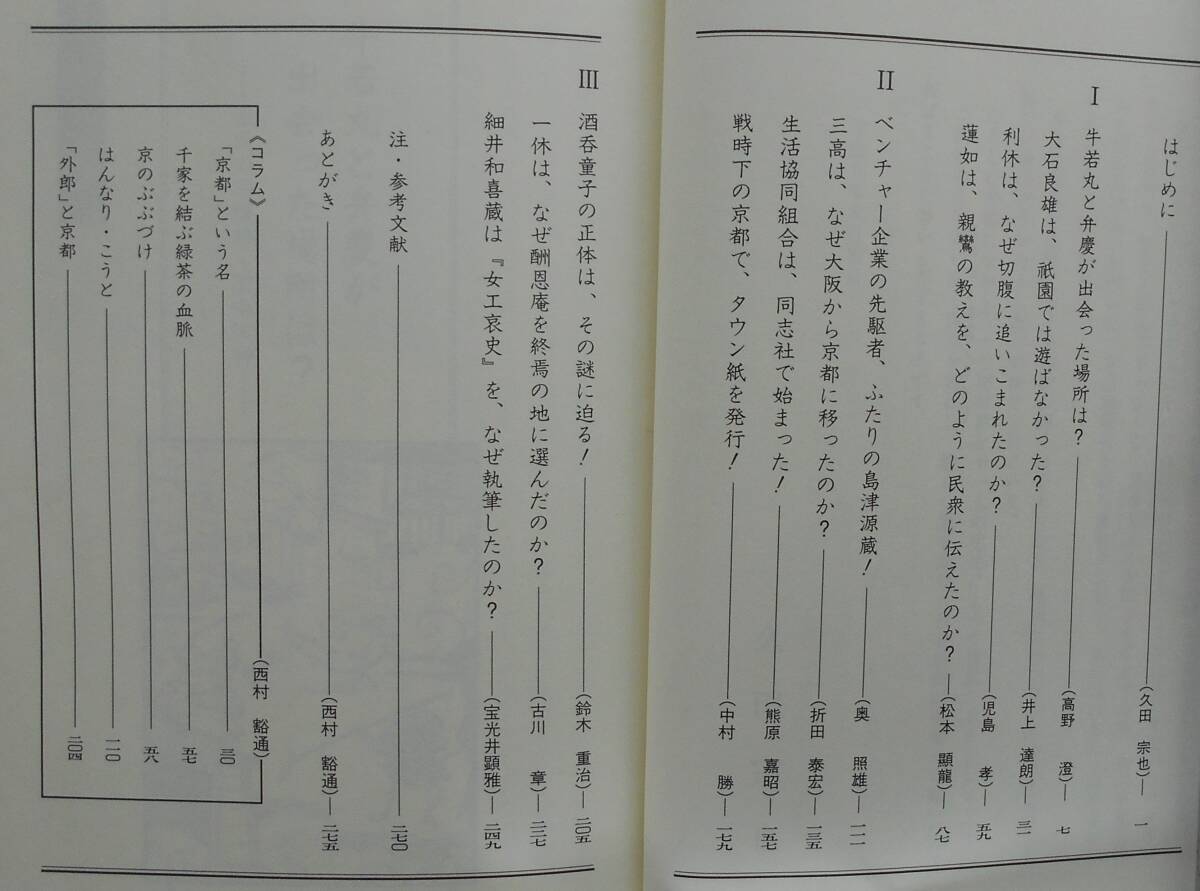 はじめに――(久田 宗也)― 一
Ⅰ 牛若丸と弁慶が出会った場所は?――(高野 澄)― 七
大石良雄は、祇園では遊ばなかった?――(井上 達朗)― 三一
利休は、なぜ切腹に追いこまれたのか?――(児島 孝)― 五九
蓮如は、親鸞の教えを、どのように民衆に伝えたのか?―(松本 顯龍)― 八七
Ⅱ ベンチャー企業の先駆者、ふたりの島津源蔵!――(奥 照雄)― 一一一
三高は、なぜ大阪から京都に移ったのか?――(折田 泰宏)― 一三五
生活協同組合は、同志社で始まった!――(熊原 嘉昭)― 一五七
戦時下の京都で、タウン紙を発行!――(中村 勝)― 一七九
Ⅲ 酒呑童子の正体は、その謎に迫る!――(鈴木 重治)― 二〇五
一休は、なぜ酬恩庵を終焉の地に選んだのか?――(古川 章)― 二二七
細井和喜蔵は『女工哀史』を、なぜ執筆したのか?――(宝光井顕雅)― 二四九
注・参考文献―― 二七〇
あとがき――(西村 豁通)― 二七五
《コラム》――(西村 豁通)
「京都」という名―― 三〇
千家を結ぶ緑茶の血脈―― 五七
京のぶぶづけ―― 五八
はんなり・こうと―― 一一〇
「外郎」と京都―― 二〇四